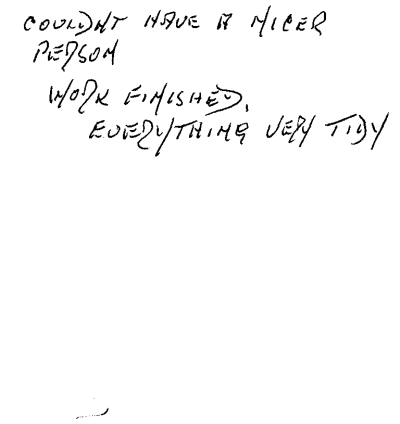 COULDNT HAVE A NICER
PERSON
WORK FINISHED,
EVERYTHING VERY TIDY